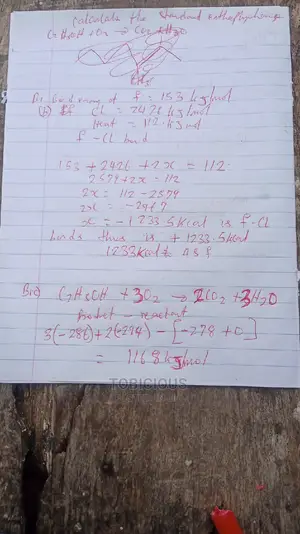 calculate the standard enthalpy change
C2H5OH + O2 → CO2 + H2O
Bond energy of F = 153 kJ/mol
Cl = 2426 kJ/mol
Heat = 112 kJ/mol
F - Cl bond
153 + 2426 + 2x = 112
2579 + 2x = 112
2x = 112 - 2579
2x = - 2467
x = - 1233.5 kcal is F - Cl
bonds thus is + 1233.5 kcal
1233 kcal to 3 S F
C2H5OH + 3O2 → 2CO2 + 3H2O
Product - reactant
3(-286) + 2(-294) - [-278 + 0]
= 1168 kJ/mol
TOBICIOUS